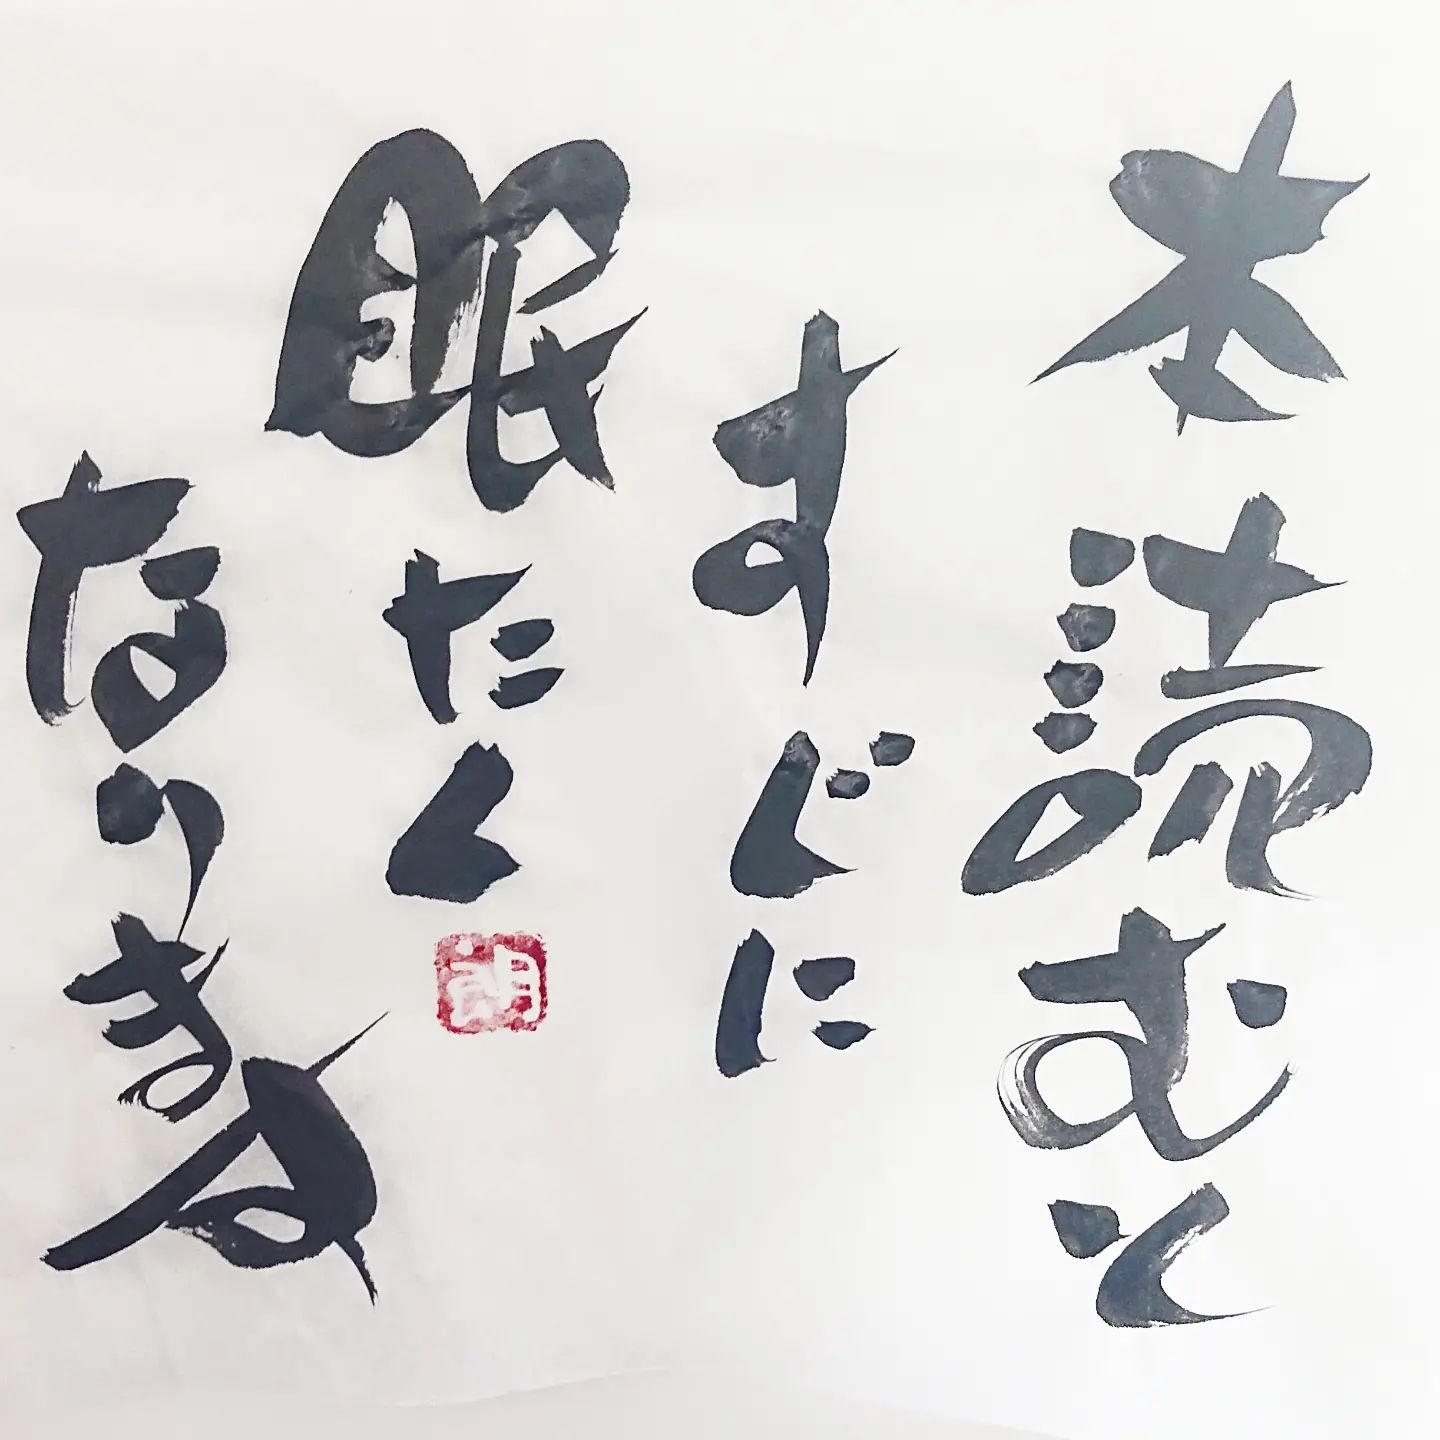 本読むと
すぐに
眠たく
なります
朗